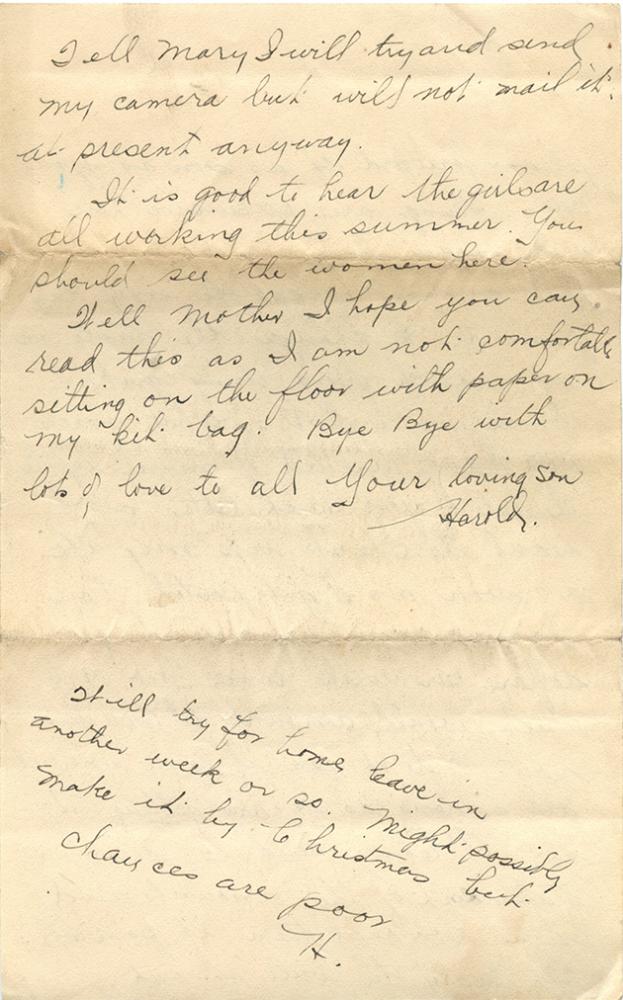 Tell Mary I will try and send
my camera but will not mail it
at present anyway.
It is good to hear the girls are
all working this summer. You
should see the women here.
Well Mother I hope you can
read this as I am not comfortable
sitting on the floor with paper on
my kit bag. Bye Bye with
lots of love to all Your loving son
Harold.
Will try for home leave in
another week or so. Might possibly
make it by Christmas but
chances are poor
H.